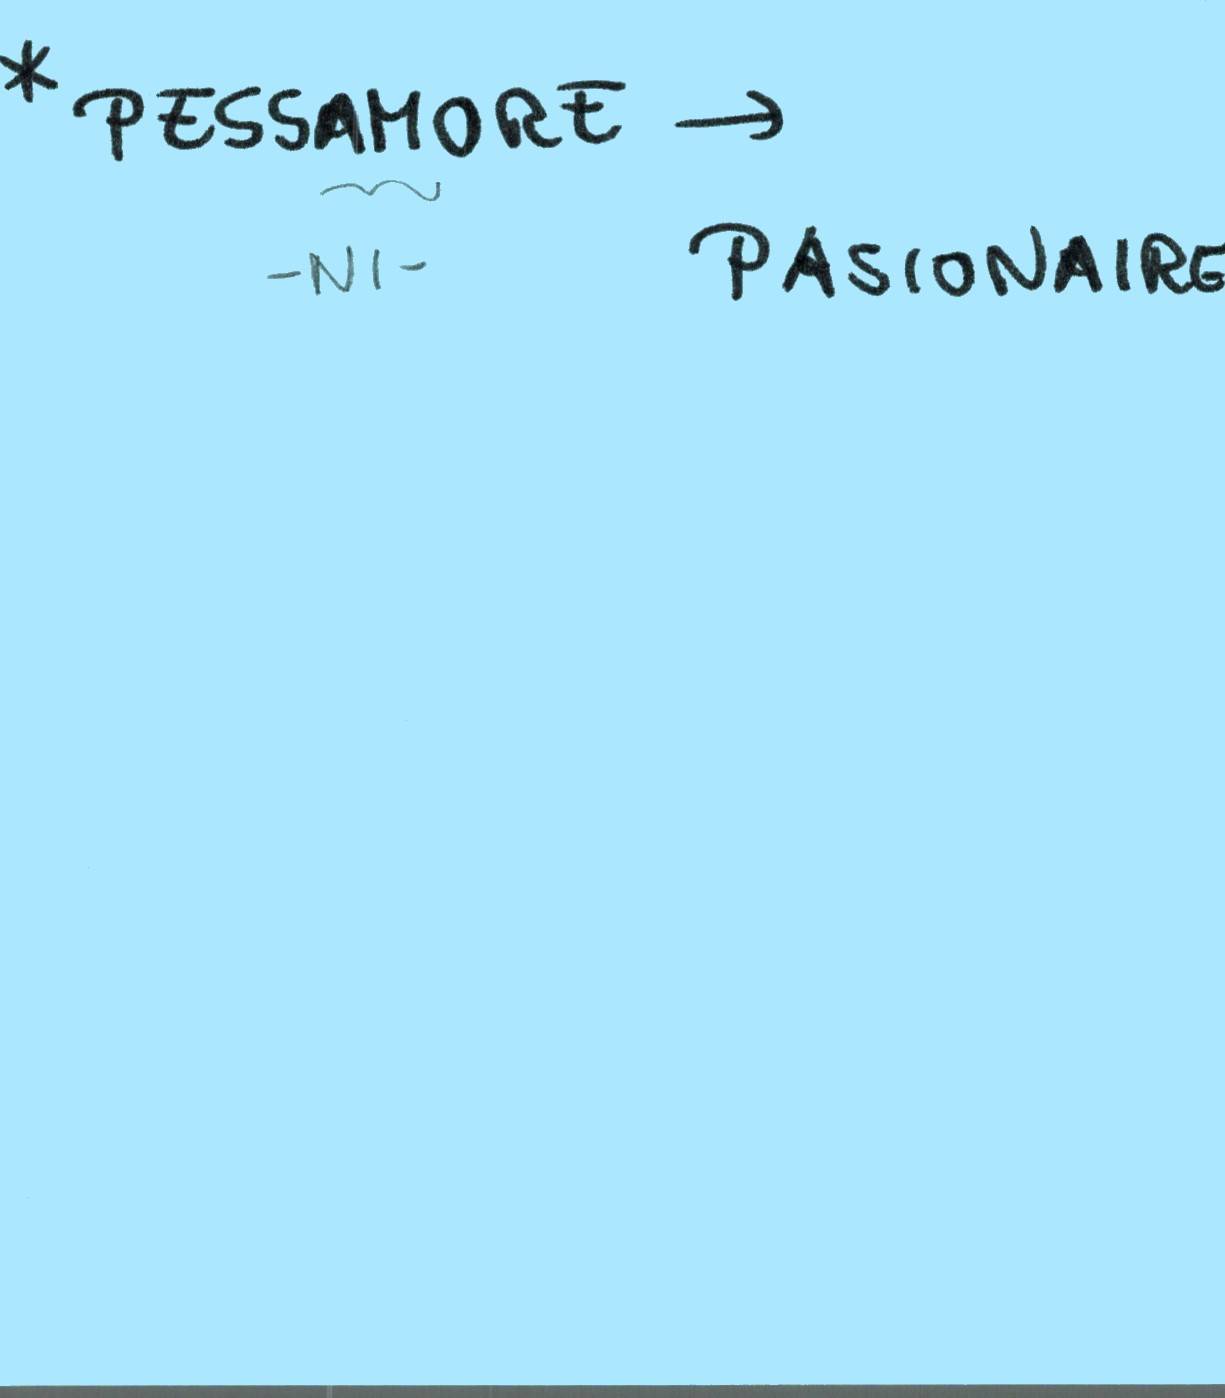 * PESSAMORE →
-NI-
PASIONAIRE